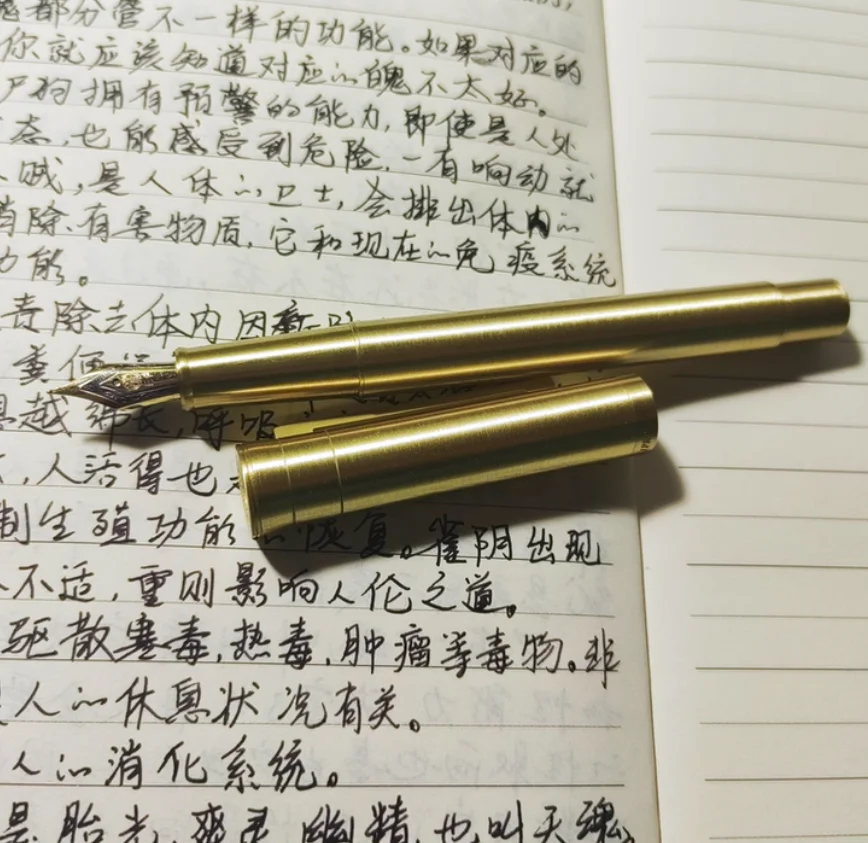 都分管不一样的功能。如果对应的
你就应该知道对应的魄不太好。
尸狗拥有预警的能力,即使是人处
态,也能感受到危险,一有响动就
贼,是人体的卫士,会排出体内的
消除有害物质,它和现在的免疫系统
功能。
责除去体内
粪便
越绵长,呼吸
,人活得也
制生殖功能的恢复。雀阴出现
不适,重则影响人伦之道。
驱散寒毒,热毒,肿瘤等毒物。非
人的休息状况有关。
人的消化系统。
是胎光,爽灵,幽精,也叫天魂,